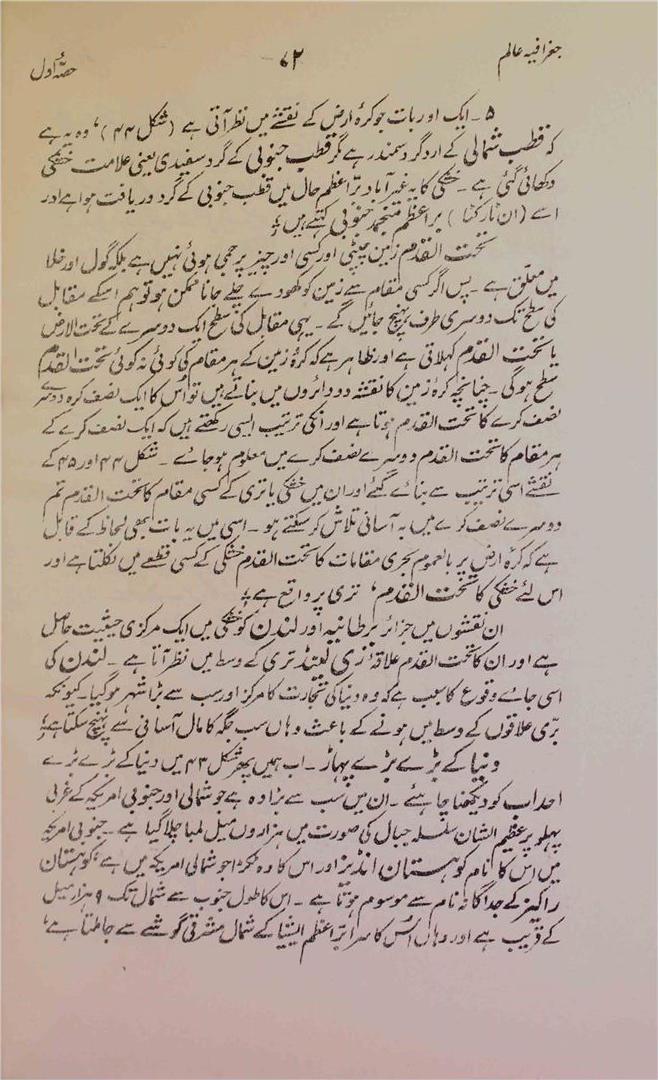 جغرافیہ عالم
۷۲
حصۂ اول
۵ ۔ ایک اور بات جو کرۂ ارض کے نقشے میں نظر آتی ہے (شکل ۴۴)، وہ یہ ہے
کہ قطب شمالی کے ارد گرد سمندر ہے مگر قطب جنوبی کے گرد سفیدی یعنی علامت خشکی
دکھائی گئی ہے ۔ خشکی کا یہ غیر آباد برّ اعظم حال میں قطب جنوبی کے گرد دریافت ہوا ہے اور
اسے (ان ٹارکٹا) برّ اعظم منجمد جنوبی کہتے ہیں؛
تحت القدم زمین چپٹی اور کسی اور چیز پر جمی ہوئی نہیں ہے بلکہ گول اور خلا
میں معلّق ہے ۔ پس اگر کسی مقام سے زمین کو کھودے چلے جانا ممکن ہو تو ہم اسکے مقابل
کی سطح تک دوسری طرف پہنچ جائیں گے ۔ یہی مقابل کی سطح ایک دوسرے کے تحت الارض
یا تحت القدم کہلاتی ہے اور ظاہر ہے کہ کرۂ زمین کے ہر مقام کی کوئی نہ کوئی تحت القدم
سطح ہوگی ۔ چنانچہ کرۂ زمین کا نقشہ دو دائروں میں بناتے ہیں تو اُس کا ایک نصف کرہ دوسرے
نصف کرے کا تحت القدم ہوتا ہے اور انکی ترتیب ایسی رکھتے ہیں کہ ایک نصف کرے کے
ہر مقام کا تحت القدم دوسرے نصف کرے میں معلوم ہو جائے ۔ شکل ۴۴ اور ۴۵ کے
نقشے اسی ترتیب سے بنائے گئے اور ان میں خشکی یا تری کے کسی مقام کا تحت القدم تم
دوسرے نصف کرے میں بہ آسانی تلاش کر سکتے ہو ۔ اسی میں یہ بات بھی لحاظ کے قابل
ہے کہ کرۂ ارض پر بالعموم بحری مقامات کا تحت القدم خشکی کے کسی قطعے میں نکلتا ہے اور
اس لئے خشکی کا تحت القدم، تری پر واقع ہے؛
ان نقشوں میں جزائر برطانیہ اور لندن کو خشکی میں ایک مرکزی حیثیت حاصل
ہے اور ان کا تحت القدم علاقۂ زی لینڈ تری کے وسط میں نظر آتا ہے ۔ لندن کی
اسی جائے وقوع کا سبب ہے کہ وہ دنیا کی تجارت کا مرکز اور سب سے بڑا شہر ہو گیا ۔ کیونکہ
برّی علاقوں کے وسط میں ہونے کے باعث وہاں سب جگہ کا مال آسانی سے پہنچ سکتا ہے؛
دنیا کے بڑے بڑے پہاڑ ۔ اب ہمیں پھر شکل ۴۳ میں دنیا کے بڑے بڑے
احداب کو دیکھنا چاہئے ۔ ان میں سب سے بڑا وہ ہے جو شمالی اور جنوبی امریکہ کے غربی
پہلو پر عظیم الشان سلسلہ جبال کی صورت میں ہزاروں میل لمبا چلا گیا ہے ۔ جنوبی امریکہ
میں اس کا نام کوہستان انڈیز اور اس کا وہ ٹکڑا جو شمالی امریکہ میں ہے، کوہستان
راکیز کے جداگانہ نام سے موسوم ہوتا ہے ۔ اس کا طول جنوب سے شمال تک ۹ ہزار میل
کے قریب ہے اور وہاں اُس کا سرا برّ اعظم ایشیا کے شمال مشرقی گوشے سے جا ملتا ہے،